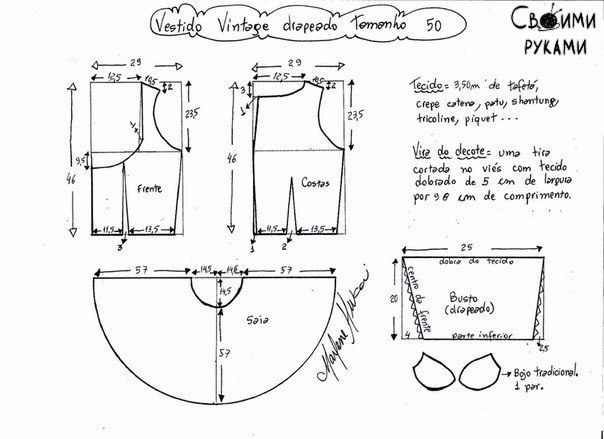 Vestido Vintage drapeado Tamanho 50
Своими
руками
29
12,5
10,5
2
23,5
46
9,5
Frente
11,5
13,5
3
29
12,5
10,5
2
3
1
23,5
46
Costas
11,5
13,5
1
2
Tecido = 3,50m de tafetá,
crepe catena, patu, shantung,
tricoline, piquet ...
Vira do decote = uma tira
cortada no viés com tecido
dobrado de 5 cm de largura
por 98 cm de comprimento.
57
14,5
14,5
57
14,5
Saia
57
Marlene Mukai
25
dobra do tecido
20
centro da frente
Busto
(drapeado)
4
parte inferior
2,5
Bojo tradicional.
1 par.